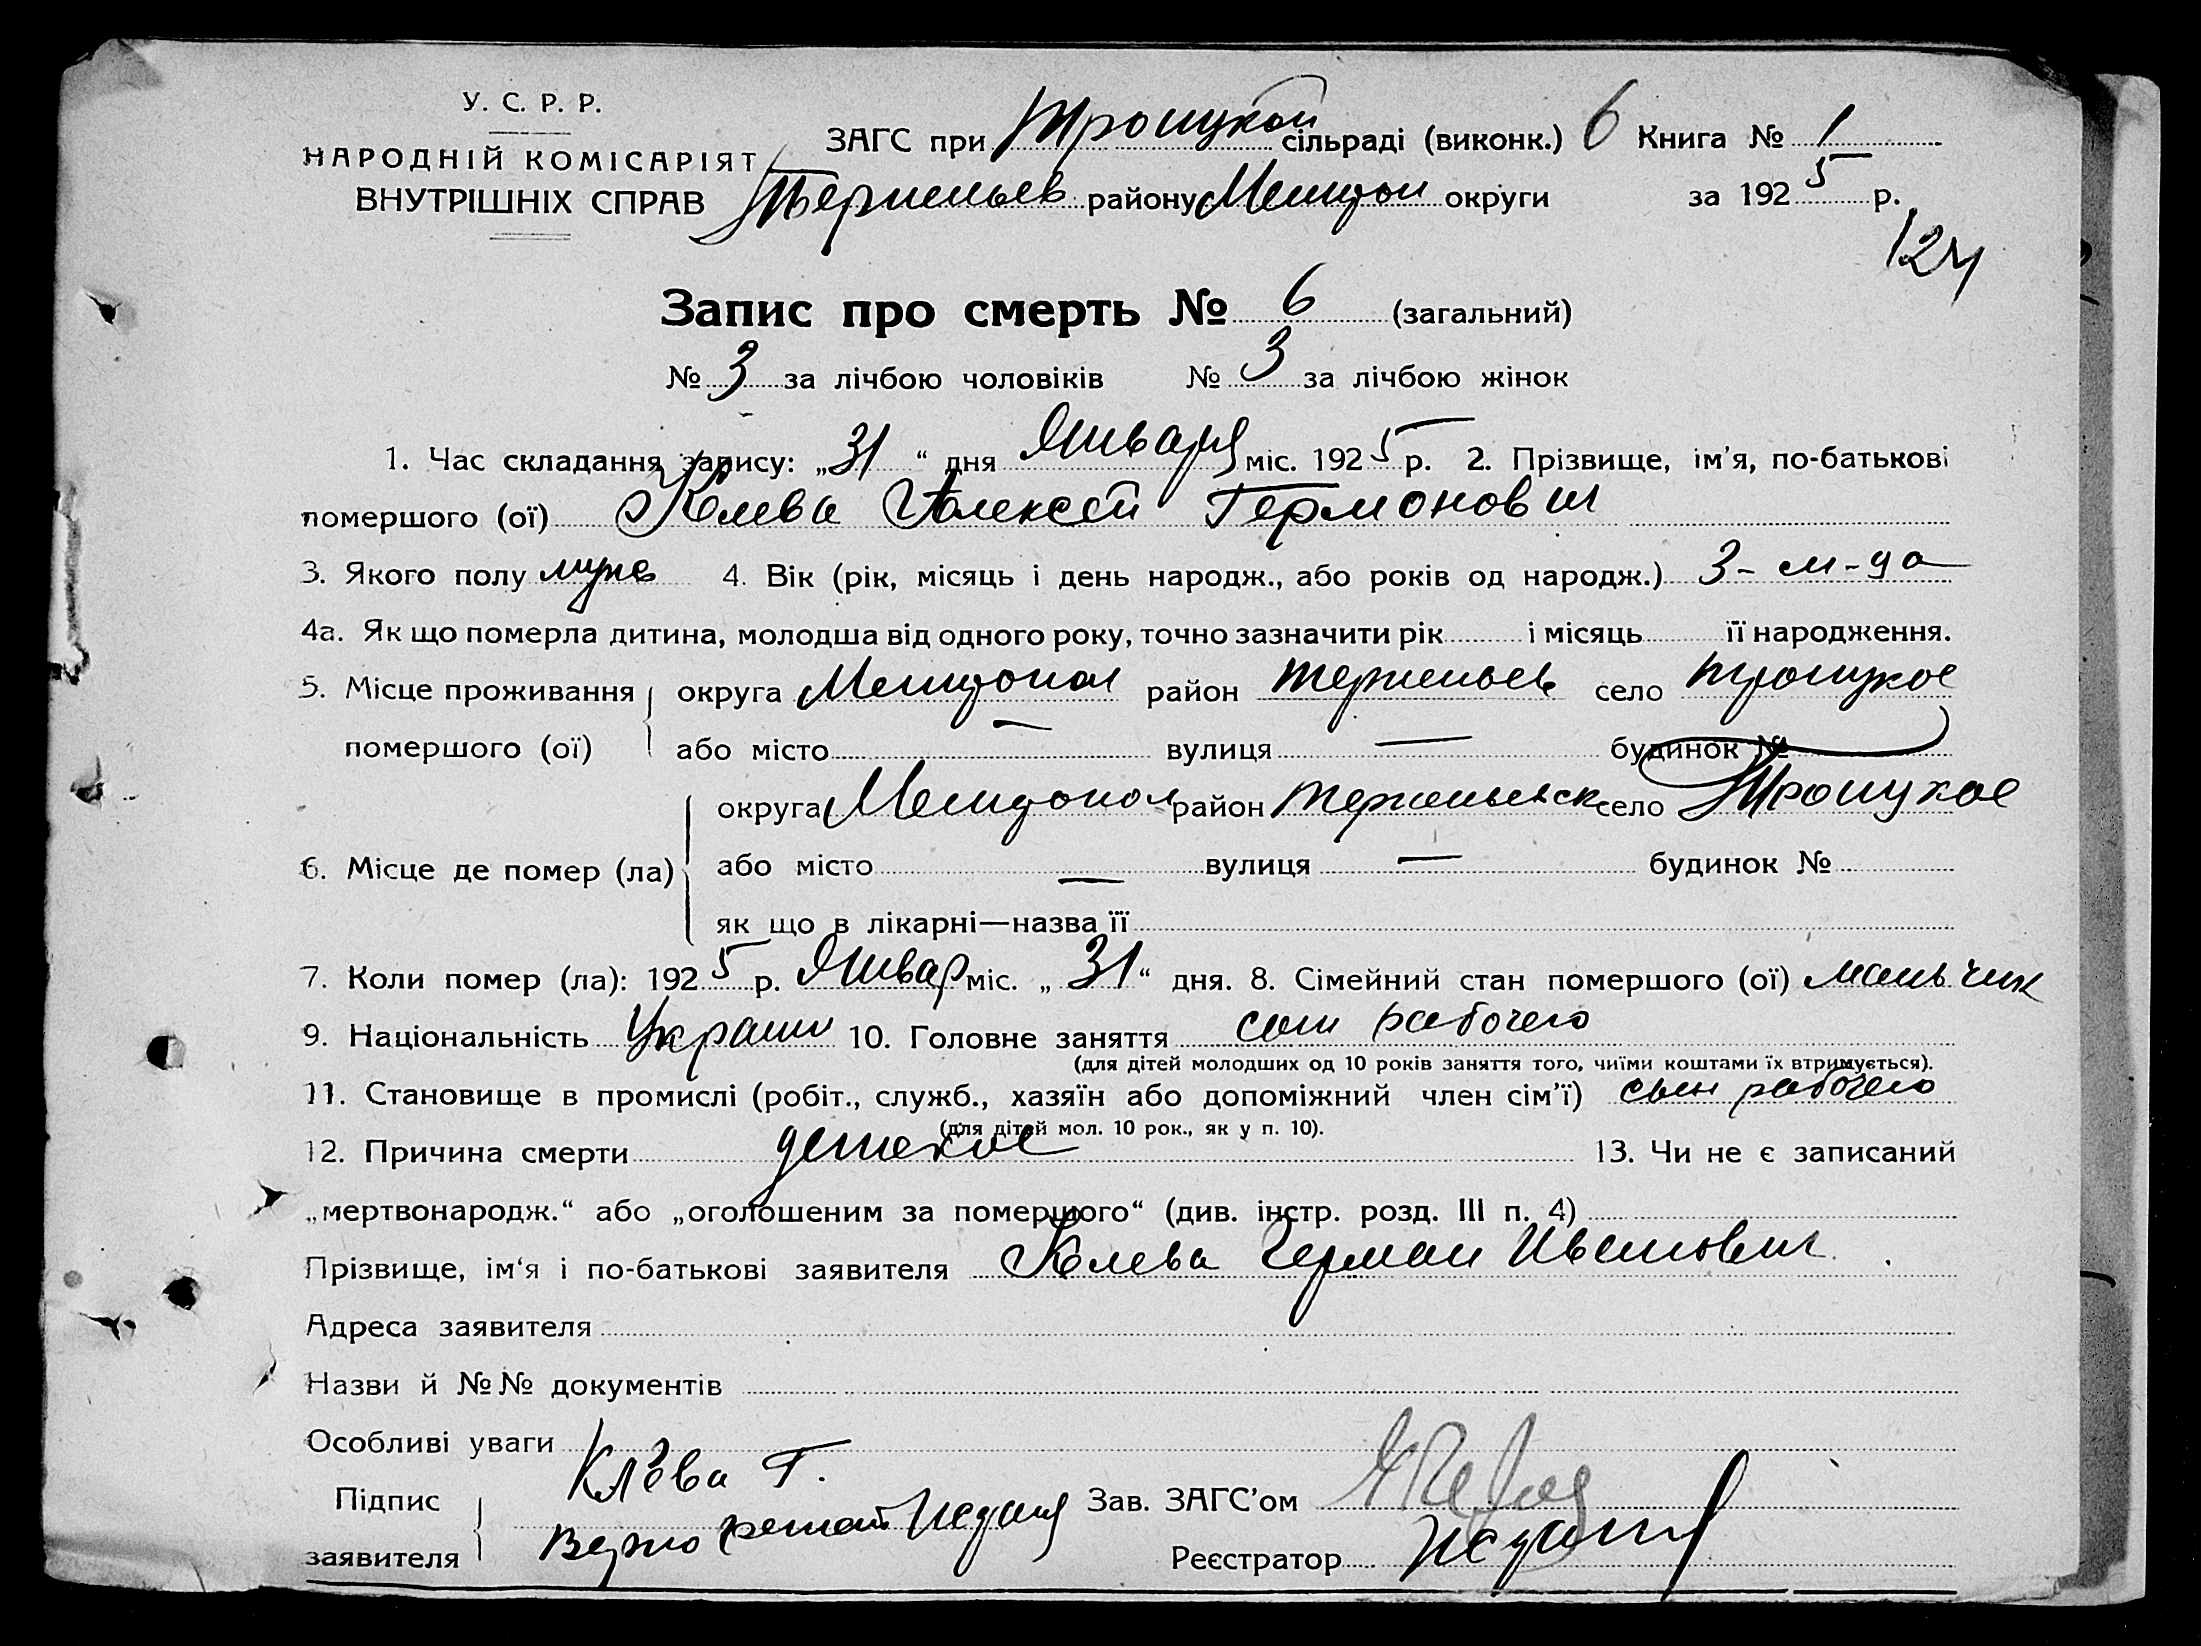 У. С. Р. Р.
НАРОДНІЙ КОМІСАРІЯТ
ВНУТРІШНІХ СПРАВ
ЗАГС при Троицкой сільраді (виконк.) 6 Книга № 1
Терпеньев району Мелитоп округи за 1925 р.
124
Запис про смерть № 6 (загальний)
№ 3 за лічбою чоловіків № 3 за лічбою жінок
1. Час складання запису: „31“ дня Января міс. 1925 р. 2. Прізвище, ім'я, по-батькові
помершого (ої) Клева Алексей Германович
3. Якого полу муж 4. Вік (рік, місяць і день народж., або років од народж.) 3-м-ца
4а. Як що померла дитина, молодша від одного року, точно зазначити рік і місяць її народження.
5. Місце проживання округа Мелитопол район Терпеньев село Троицкое
помершого (ої) або місто — вулиця — будинок №
округа Мелитопол район Терпеньевск село Троицкое
6. Місце де помер (ла) або місто — вулиця — будинок №
як що в лікарні—назва її
7. Коли помер (ла): 1925 р. Январ міс. „31“ дня. 8. Сімейний стан помершого (ої) мальчик
9. Національність Украин 10. Головне заняття сын рабочего
(для дітей молодших од 10 років заняття того, чиїми коштами їх втримується).
11. Становище в промислі (робіт., служб., хазяїн або допоміжний член сім'ї) сын рабочего
(для дітей мол. 10 рок., як у п. 10).
12. Причина смерти детское 13. Чи не є записаний
„мертвонародж.“ або „оголошеним за помершого“ (див. інстр. розд. III п. 4)
Прізвище, ім'я і по-батькові заявителя Клева Герман Иванович
Адреса заявителя
Назви й №№ документів
Особливі уваги
Клёва Г.
Підпис Зав. ЗАГС'ом
заявителя Верно Реєстратор